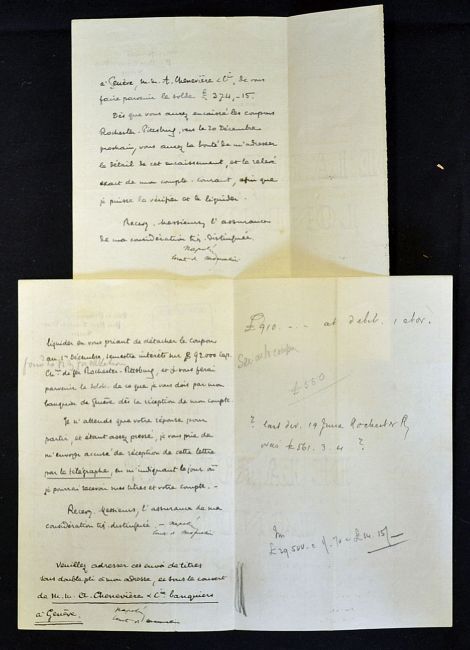 à Genève, M.M. A. Chenevière & Cie, de vous
faire parvenir le solde £ 374,-15.
Dès que vous aurez encaissé les coupons
Rochester-Pittsburg, vers le 20 Décembre
prochain, vous aurez la bonté de m'adresser
le détail de cet encaissement, et le relevé
exact de mon compte-courant, afin que
je puisse le vérifier et le liquider.
Recevez, Messieurs, l'assurance
de ma considération très distinguée.
Napoléon
liquider en vous priant de détacher le coupon
du 1er Décembre, semestre intérêts sur £ 92.000 cap.
Ch. de fer Rochester-Pittsburg, et je vous ferai
parvenir le solde de ce que je vous dois par mon
banquier de Genève dès la réception de mon compte.
Je n'attends que votre réponse pour
partir, et étant assez pressé, je vous prie de
m'envoyer accusé de réception de cette lettre
par le télégraphe, en m'indiquant le jour où
je pourrai recevoir mes titres et votre compte.-
Recevez, Messieurs, l'assurance de ma
considération très distinguée.- Napoléon
Veuillez adresser cet envoi de titres
sous double pli à mon adresse, et sous le couvert
de M.M. A. Chenevière & Cie banquiers
à Genève.
Napoléon
£910. -- at debit
£550
? last div. 19 June Rochester Ry
was £561. 3. 11 ?